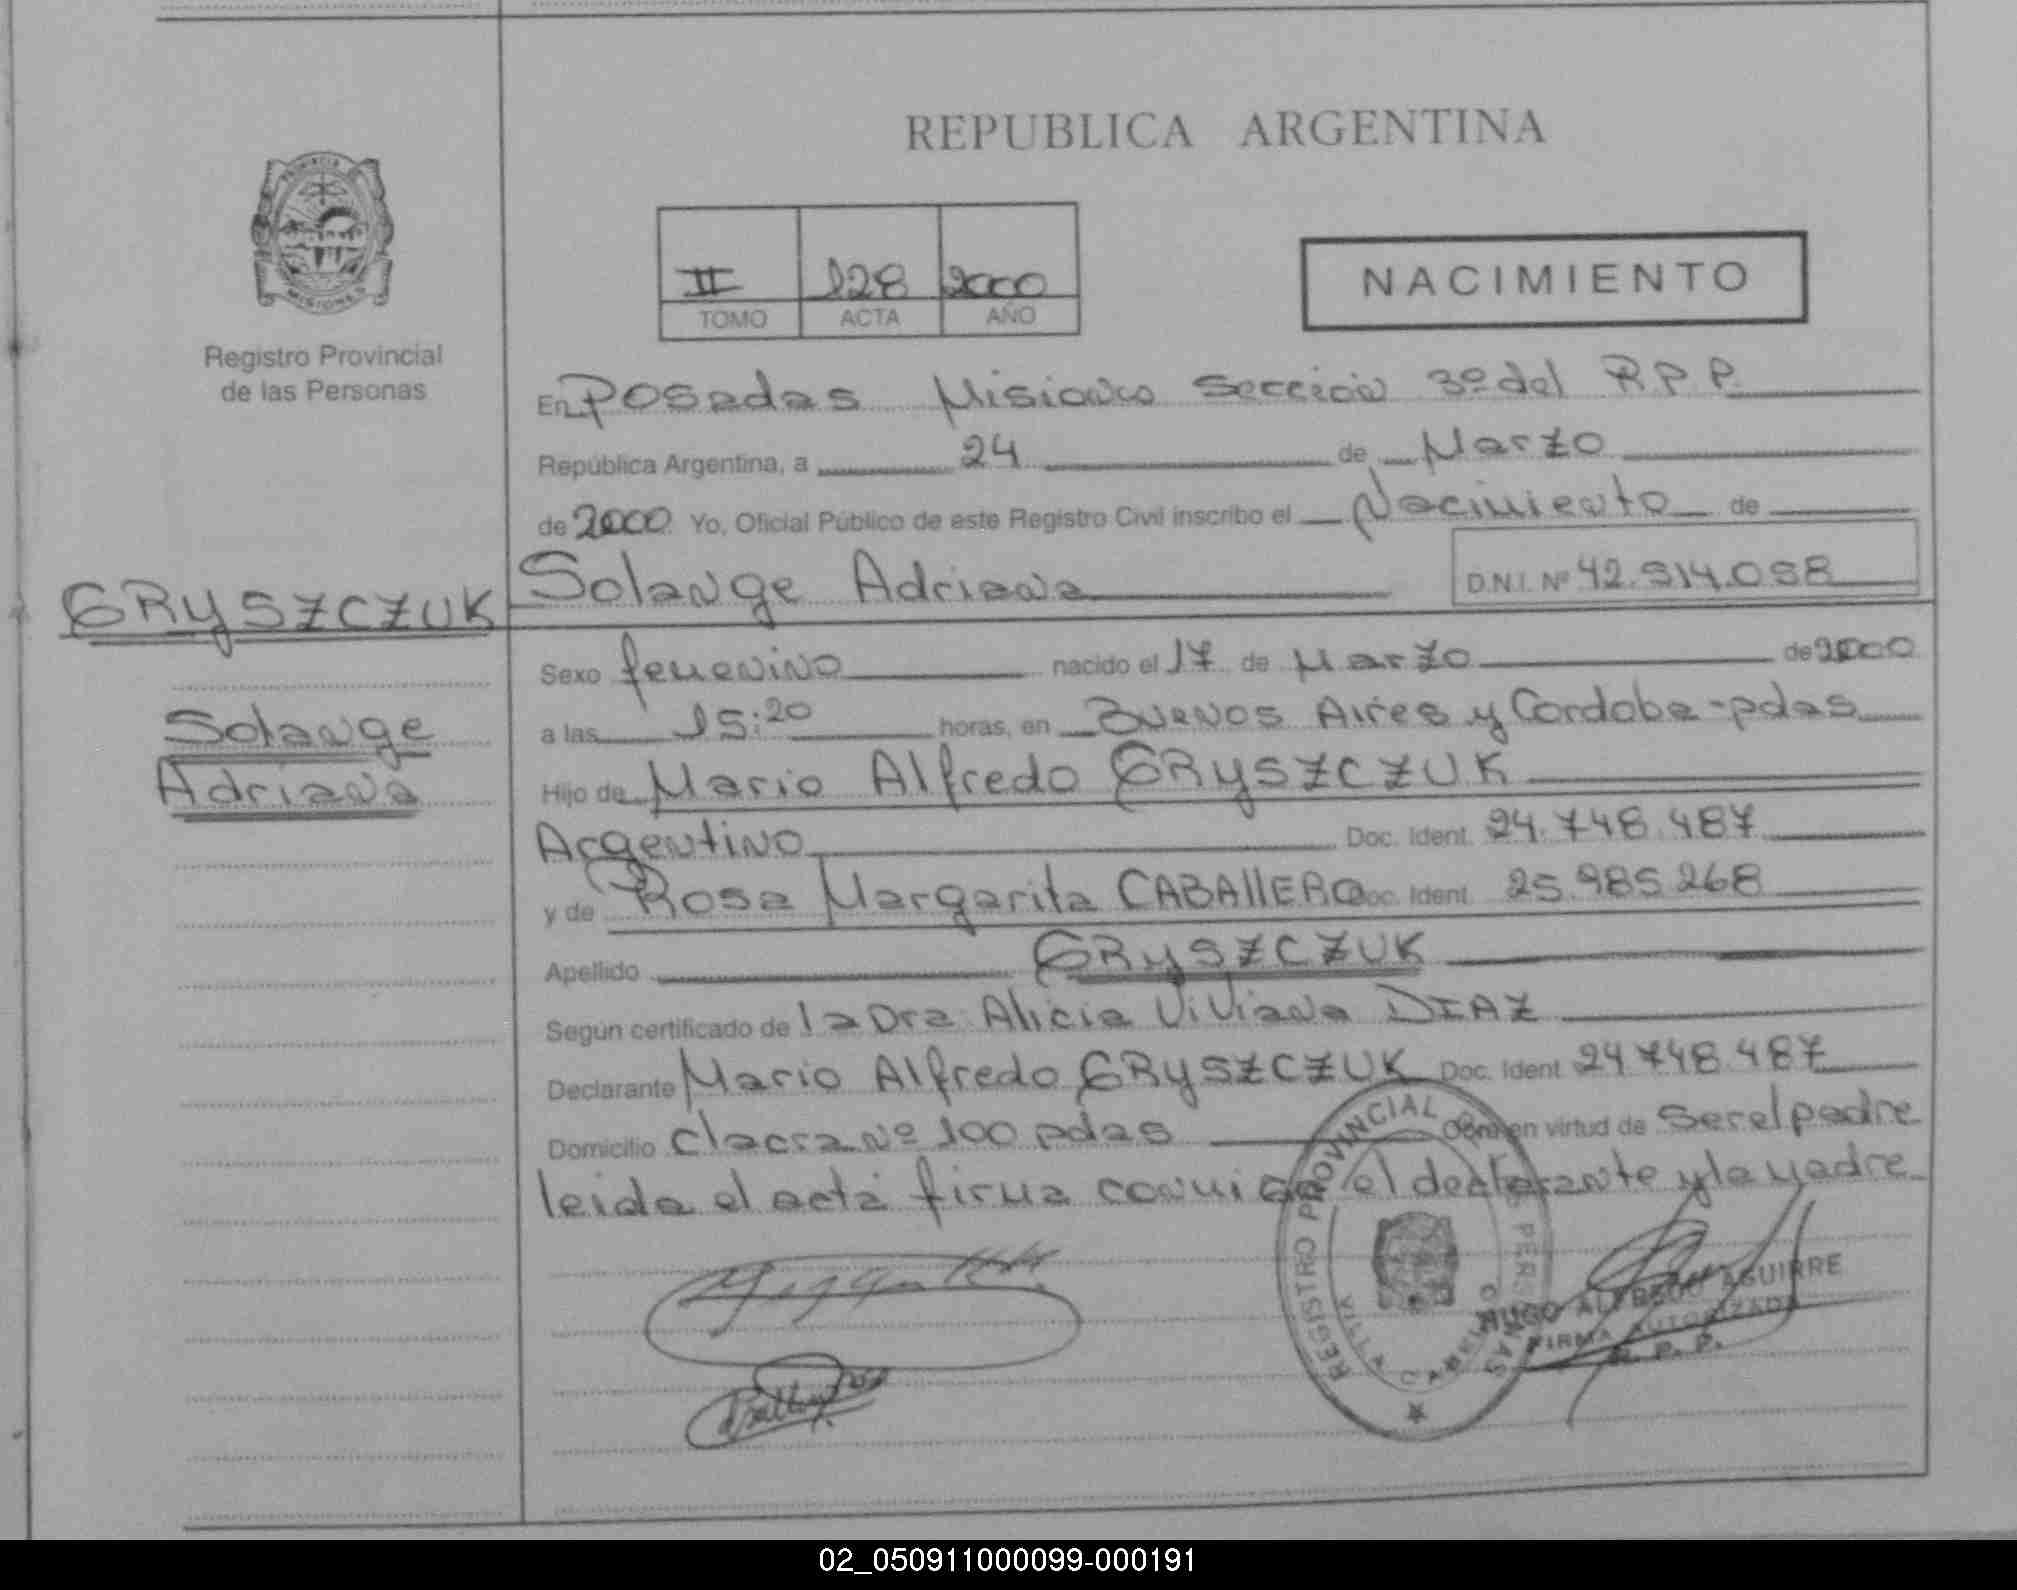 REPUBLICA ARGENTINA
PROVINCIA
MISIONES
Registro Provincial
de las Personas
II 128 2000
TOMO ACTA AÑO
NACIMIENTO
En Posadas Misiones Sección 3º del R.P.P.
República Argentina, a 24 de Marzo
de 2000 Yo, Oficial Público de este Registro Civil inscribo el Nacimiento de
GRYSZCZUK Solange Adriana D.N.I. Nº 42.514.058
Solange
Adriana
Sexo femenino nacido el 17 de Marzo de 2000
a las 15:20 horas, en Buenos Aires y Cordoba-pdas
Hijo de Mario Alfredo GRYSZCZUK
Argentino Doc. Ident. 24.748.487
y de Rosa Margarita CABAllERO Doc. Ident. 25.985.268
Apellido GRYSZCZUK
Según certificado de la Dra Alicia Viviana DIAZ
Declarante Mario Alfredo GRYSZCZUK Doc. Ident 24.748.487
Domicilio chacra Nº 100 pdas Obra en virtud de ser el padre
leida el acta firma conmigo el declarante y la madre
REGISTRO PROVINCIAL DE LAS PERSONAS
VILLA CABELLO
HUGO ALFREDO AGUIRRE
FIRMA AUTORIZADA
R. P. P.
02_050911000099-000191